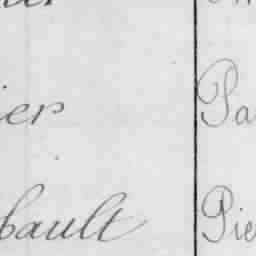 ier Pa
bault Pie